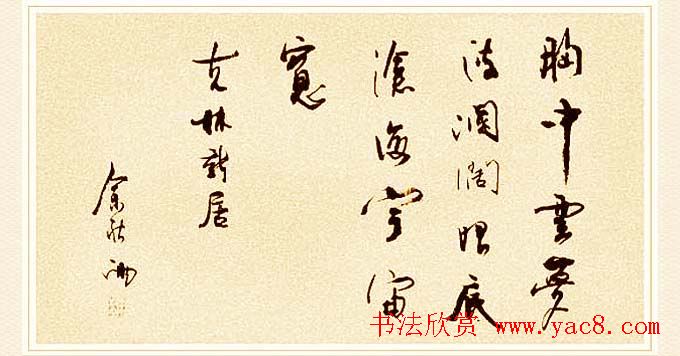 胸中雲夢
波瀾闊眼底
滄海宇宙
寬
克林新居
余秋雨
书法欣赏 www.yac8.com